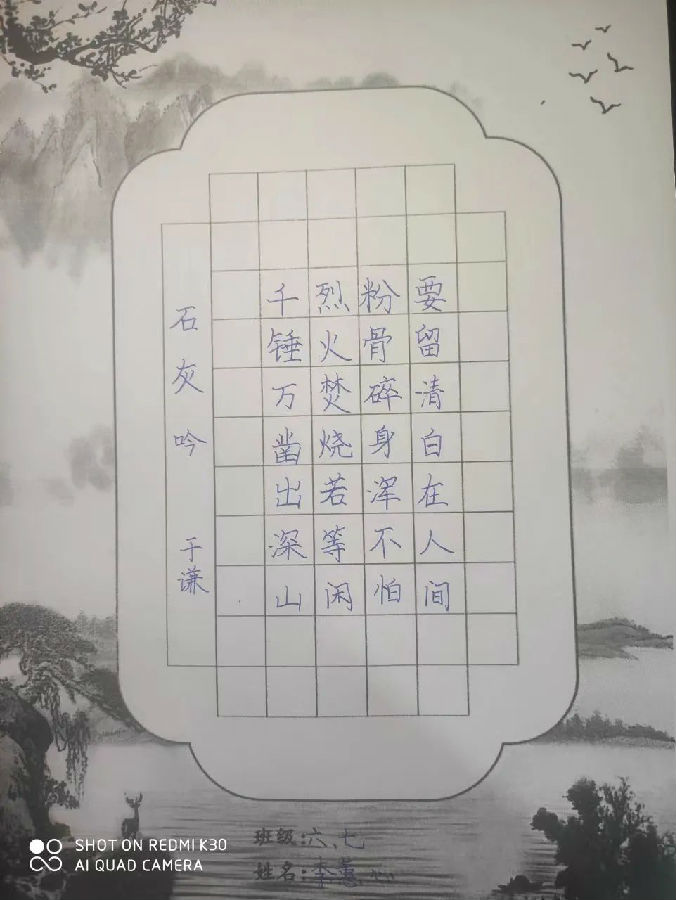 石灰吟
于谦
千锤万凿出深山
烈火焚烧若等闲
粉骨碎身浑不怕
要留清白在人间
班级:六、七
姓名:李
SHOT ON REDMI K30
AI QUAD CAMERA